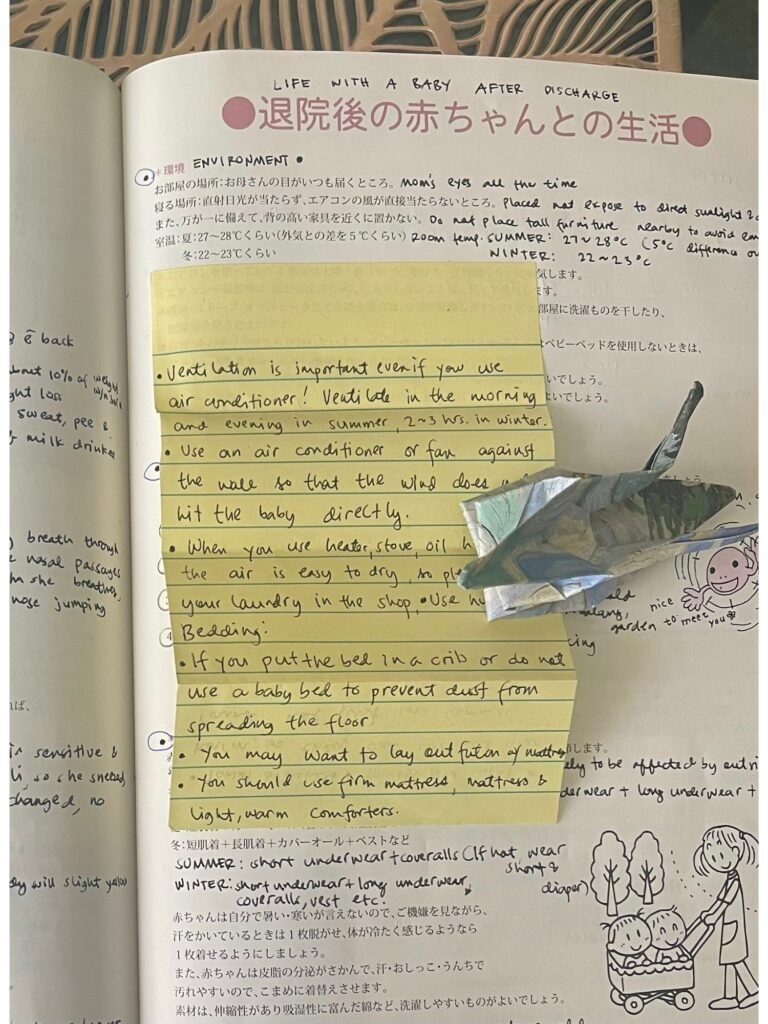 LIFE WITH A BABY AFTER DISCHARGE
●退院後の赤ちゃんとの生活●
*環境 ENVIRONMENT •
お部屋の場所:お母さんの目がいつも届くところ。 Mom's eyes all the time
寝る場所:直射日光が当たらず、エアコンの風が直接当たらないところ。 Placed not expose to direct sunlight &
また、万が一に備えて、背の高い家具を近くに置かない。 Do not place tall furniture nearby to avoid
室温:夏:27~28℃くらい(外気との差を5℃くらい) Room temp. SUMMER: 27~28°C (5°C difference
冬:22~23℃くらい WINTER: 22~23°C
気します。
ます。
部屋に洗濯ものを干したり、
ベビーベッドを使用しないときは、
いでしょう。
よいでしょう。
• Ventilation is important even if you use
air conditioner! Ventilate in the morning
and evening in summer, 2~3 hrs. in winter.
• Use an air conditioner or fan against
the wall so that the wind does
hit the baby directly.
• When you use heater, stove, oil
the air is easy to dry, so
your laundry in the shop. • Use
Bedding:
• If you put the bed in a crib or do not
use a baby bed to prevent dust from
spreading the floor.
• You may want to lay out futon
• You should use firm mattress, mattress &
light, warm comforters.
back
10% of weight
loss
sweat, pee &
milk drinked
breath through
nasal passages
she breathes.
nose jumping
sensitive &
so she sneezes
changed, no
will slight yellow
nice
to meet
you
garden
します。
to be affected by
underwear + long underwear +
冬:短肌着+長肌着+カバーオール+ベストなど
SUMMER: short underwear + coveralls (If hot, wear
short &
diaper)
WINTER: short underwear + long underwear,
coveralls, vest etc.
赤ちゃんは自分で暑い・寒いが言えないので、ご機嫌を見ながら、
汗をかいているときは1枚脱がせ、体が冷たく感じるようなら
1枚着せるようにしましょう。
また、赤ちゃんは皮脂の分泌がさかんで、汗・おしっこ・うんちで
汚れやすいので、こまめに着替えさせます。
素材は、伸縮性があり吸湿性に富んだ綿など、洗濯しやすいものがよいでしょう。